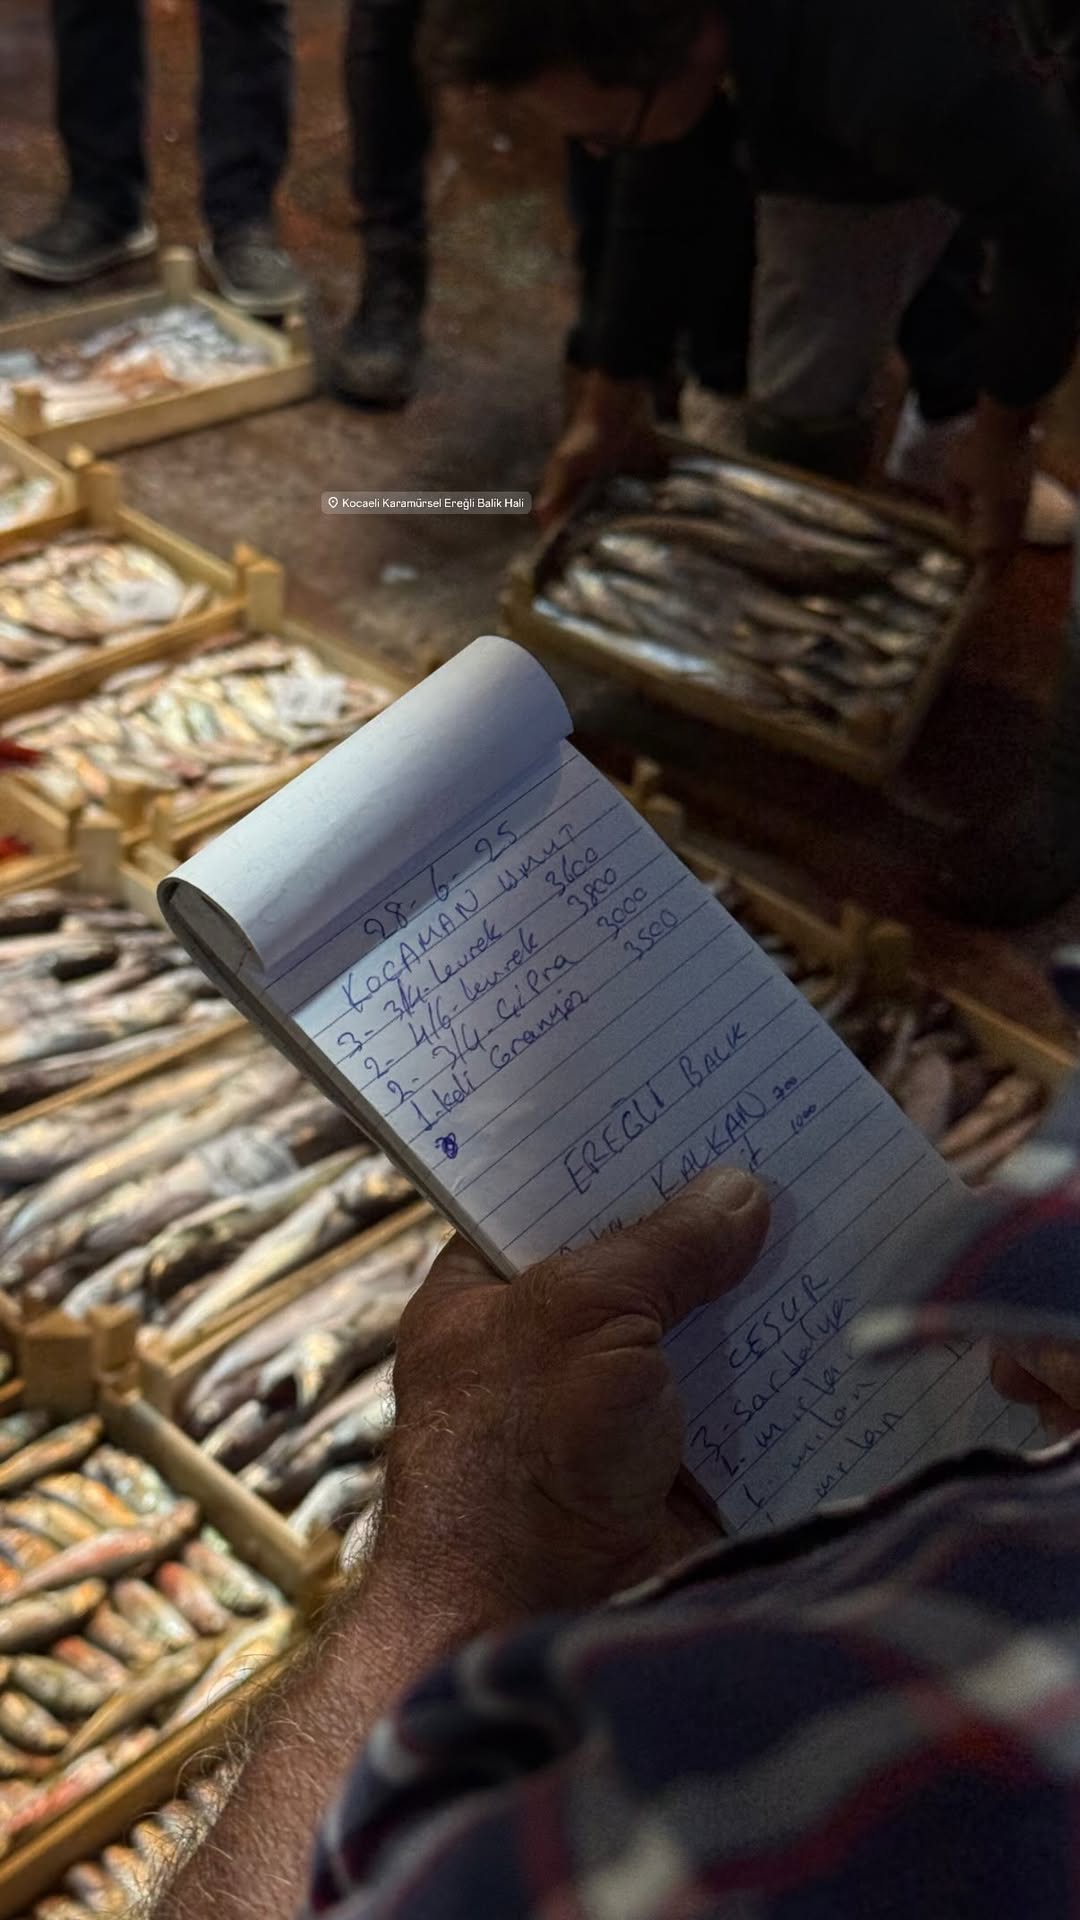 Kocaeli Karamürsel Ereğli Balık Hali
28-6-25
KOCAMAN UMUT
3- 3/4-Levrek 3600
2- 4/6-Levrek 3800
2- 3/4-Çipra 3000
1-koli Granyöz 3500
EREĞLİ BALIK
KALKAN 700
1000
CESUR
3-Sardalya
1-
1-